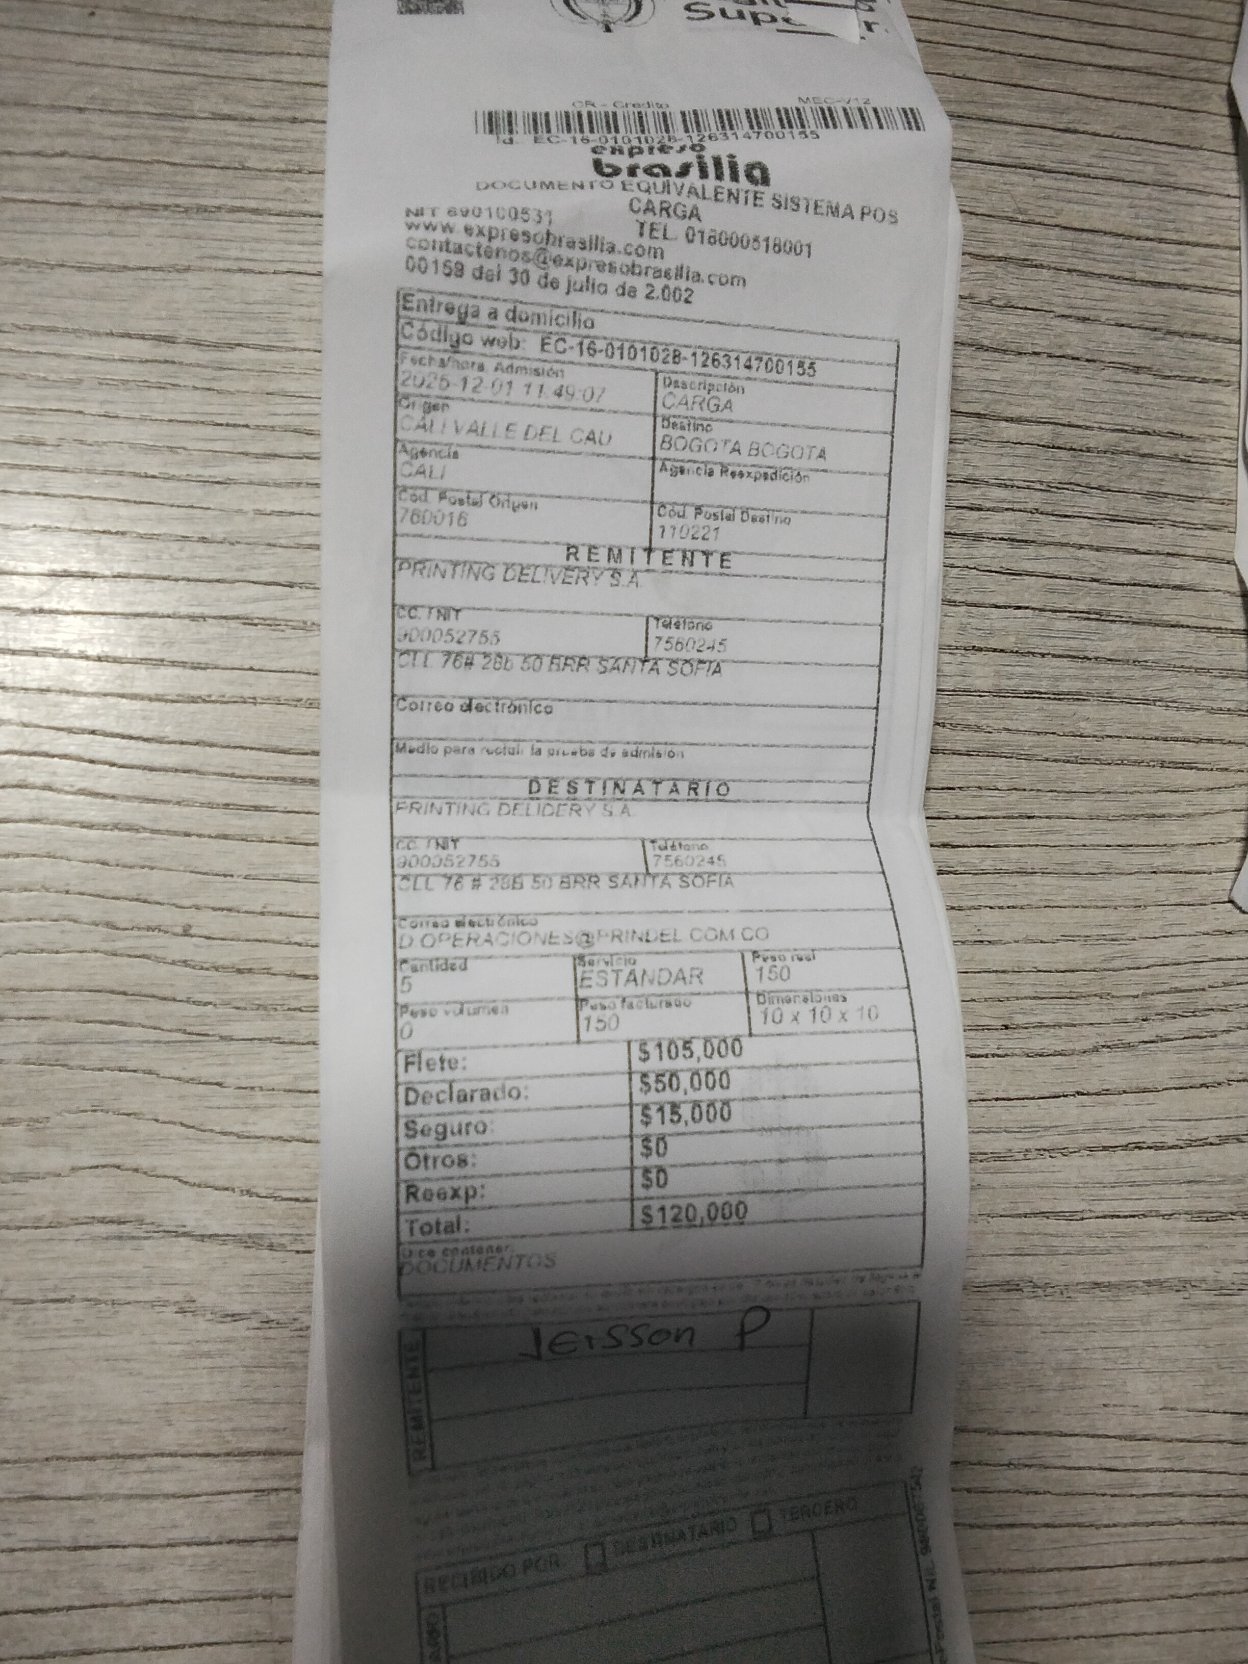 CR - Credito MEC-V12
Id. EC-16-0101028-126314700155
expreso
brasilia
DOCUMENTO EQUIVALENTE SISTEMA POS
CARGA
NIT 890100531 TEL. 018000518001
www.expresobrasilia.com
contactenos@expresobrasilia.com
00159 del 30 de julio de 2.002
Entrega a domicilio
Código web: EC-16-0101028-126314700155
Fecha/hora Admisión Descripción
2025-12-01 11:49:07 CARGA
Origen Destino
CALI VALLE DEL CAU BOGOTA BOGOTA
Agencia Agencia Reexpedición
CALI
Cód. Postal Origen Cód. Postal Destino
760016 110221
REMITENTE
PRINTING DELIVERY S.A.
CC. / NIT Teléfono
900052755 7560245
CLL 76# 28b 50 BRR SANTA SOFIA
Correo electrónico
Medio para recibir la prueba de admisión
DESTINATARIO
PRINTING DELIDERY S.A.
CC. / NIT Teléfono
900052755 7560245
CLL 76 # 28B 50 BRR SANTA SOFIA
Correo electrónico
D.OPERACIONES@PRINDEL.COM.CO
Cantidad Servicio Peso real
5 ESTANDAR 150
Peso volumen Peso facturado Dimensiones
0 150 10 x 10 x 10
Flete: $105,000
Declarado: $50,000
Seguro: $15,000
Otros: $0
Reexp: $0
Total: $120,000
Dice contener:
DOCUMENTOS
REMITENTE
Jeisson P
RECIBIDO POR DESTINATARIO TERCERO